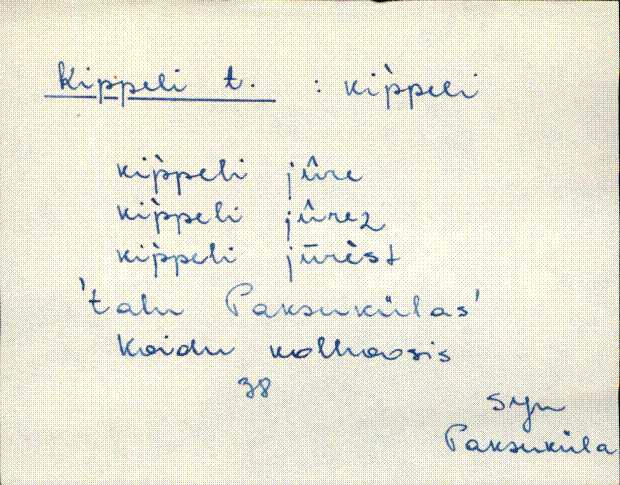 Kippeli t. : kìppeli
kìppeli jûre
kìppeli jûrez
kìppeli jūrèst
'talu Paksukülas'
Koidu kolhoosis
38
Syn
Paksuküla